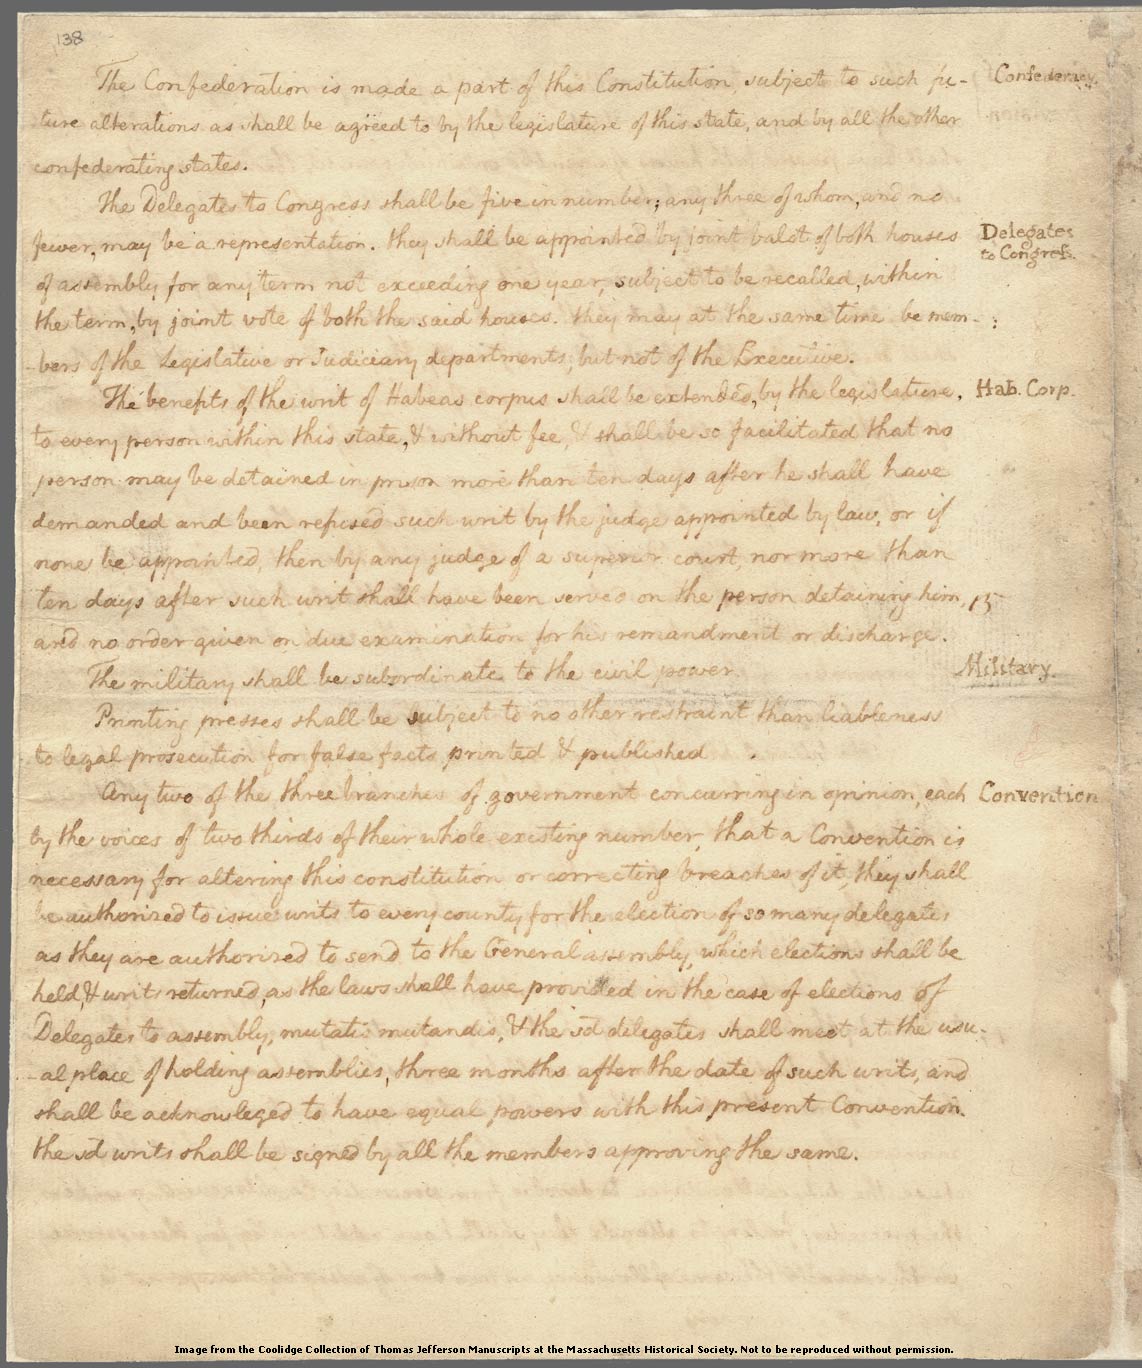 138
The Confederation is made a part of this Constitution, subject to such fu- Confederacy.
ture alterations as shall be agreed to by the legislature of this state, and by all the other
confederating states.
The Delegates to Congress shall be five in number; any three of whom, and no
fewer, may be a representation. they shall be appointed by joint balot of both houses Delegates
of assembly for any term not exceeding one year, subject to be recalled, within to Congress.
the term, by joint vote of both the said houses. they may at the same time be mem-
-bers of the Legislative or Judiciary departments, but not of the Executive.
The benefits of the writ of Habeas corpus shall be extended, by the legislature, Hab. Corp.
to every person within this state, & without fee, & shall be so facilitated that no
person may be detained in prison more than ten days after he shall have
demanded and been refused such writ by the judge appointed by law, or if
none be appointed, then by any judge of a superior court, nor more than
ten days after such writ shall have been served on the person detaining him,
and no order given on due examination for his remandment or discharge.
The military shall be subordinate to the civil power. Military.
Printing presses shall be subject to no other restraint than liableness
to legal prosecution for false facts printed & published.
Any two of the three branches of government concurring in opinion, each Convention
by the voices of two thirds of their whole existing number, that a Convention is
necessary for altering this constitution or correcting breaches of it, they shall
be authorized to issue writs to every county for the election of so many delegates
as they are authorized to send to the General assembly, which elections shall be
held, & writs returned, as the laws shall have provided in the case of elections of
Delegates to assembly, mutatis mutandis, & the sd delegates shall meet at the usu-
-al place of holding assemblies, three months after the date of such writs, and
shall be acknowleged to have equal powers with this present Convention.
the sd writs shall be signed by all the members approving the same.
Image from the Coolidge Collection of Thomas Jefferson Manuscripts at the Massachusetts Historical Society. Not to be reproduced without permission.